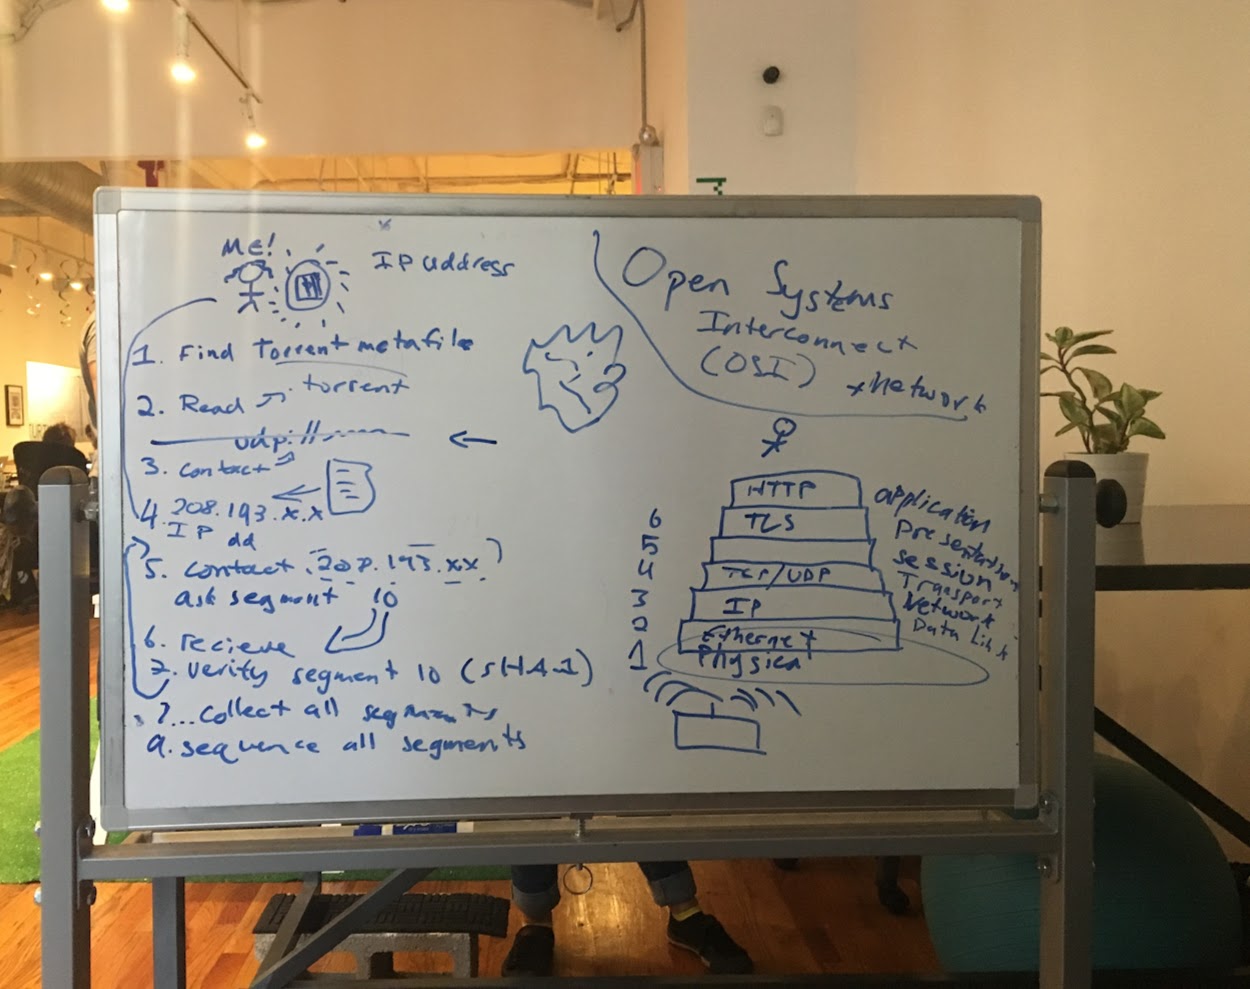 ME!
IP address
1. Find Torrent metafile
2. Read torrent
udp://
3. contact
4. 208.193.x.x
IP ad
5. contact 208.193.xx
ask segment 10
6. recieve
7. verify segment 10 (SHA1)
?...collect all segments
9. sequence all segments
Open Systems
Interconnect
(OSI)
Network
HTTP
6 TLS
5
4 TCP/UDP
3 IP
2 Ethernet
1 Physical
application
Presentation
session
Transport
Network
Data Link